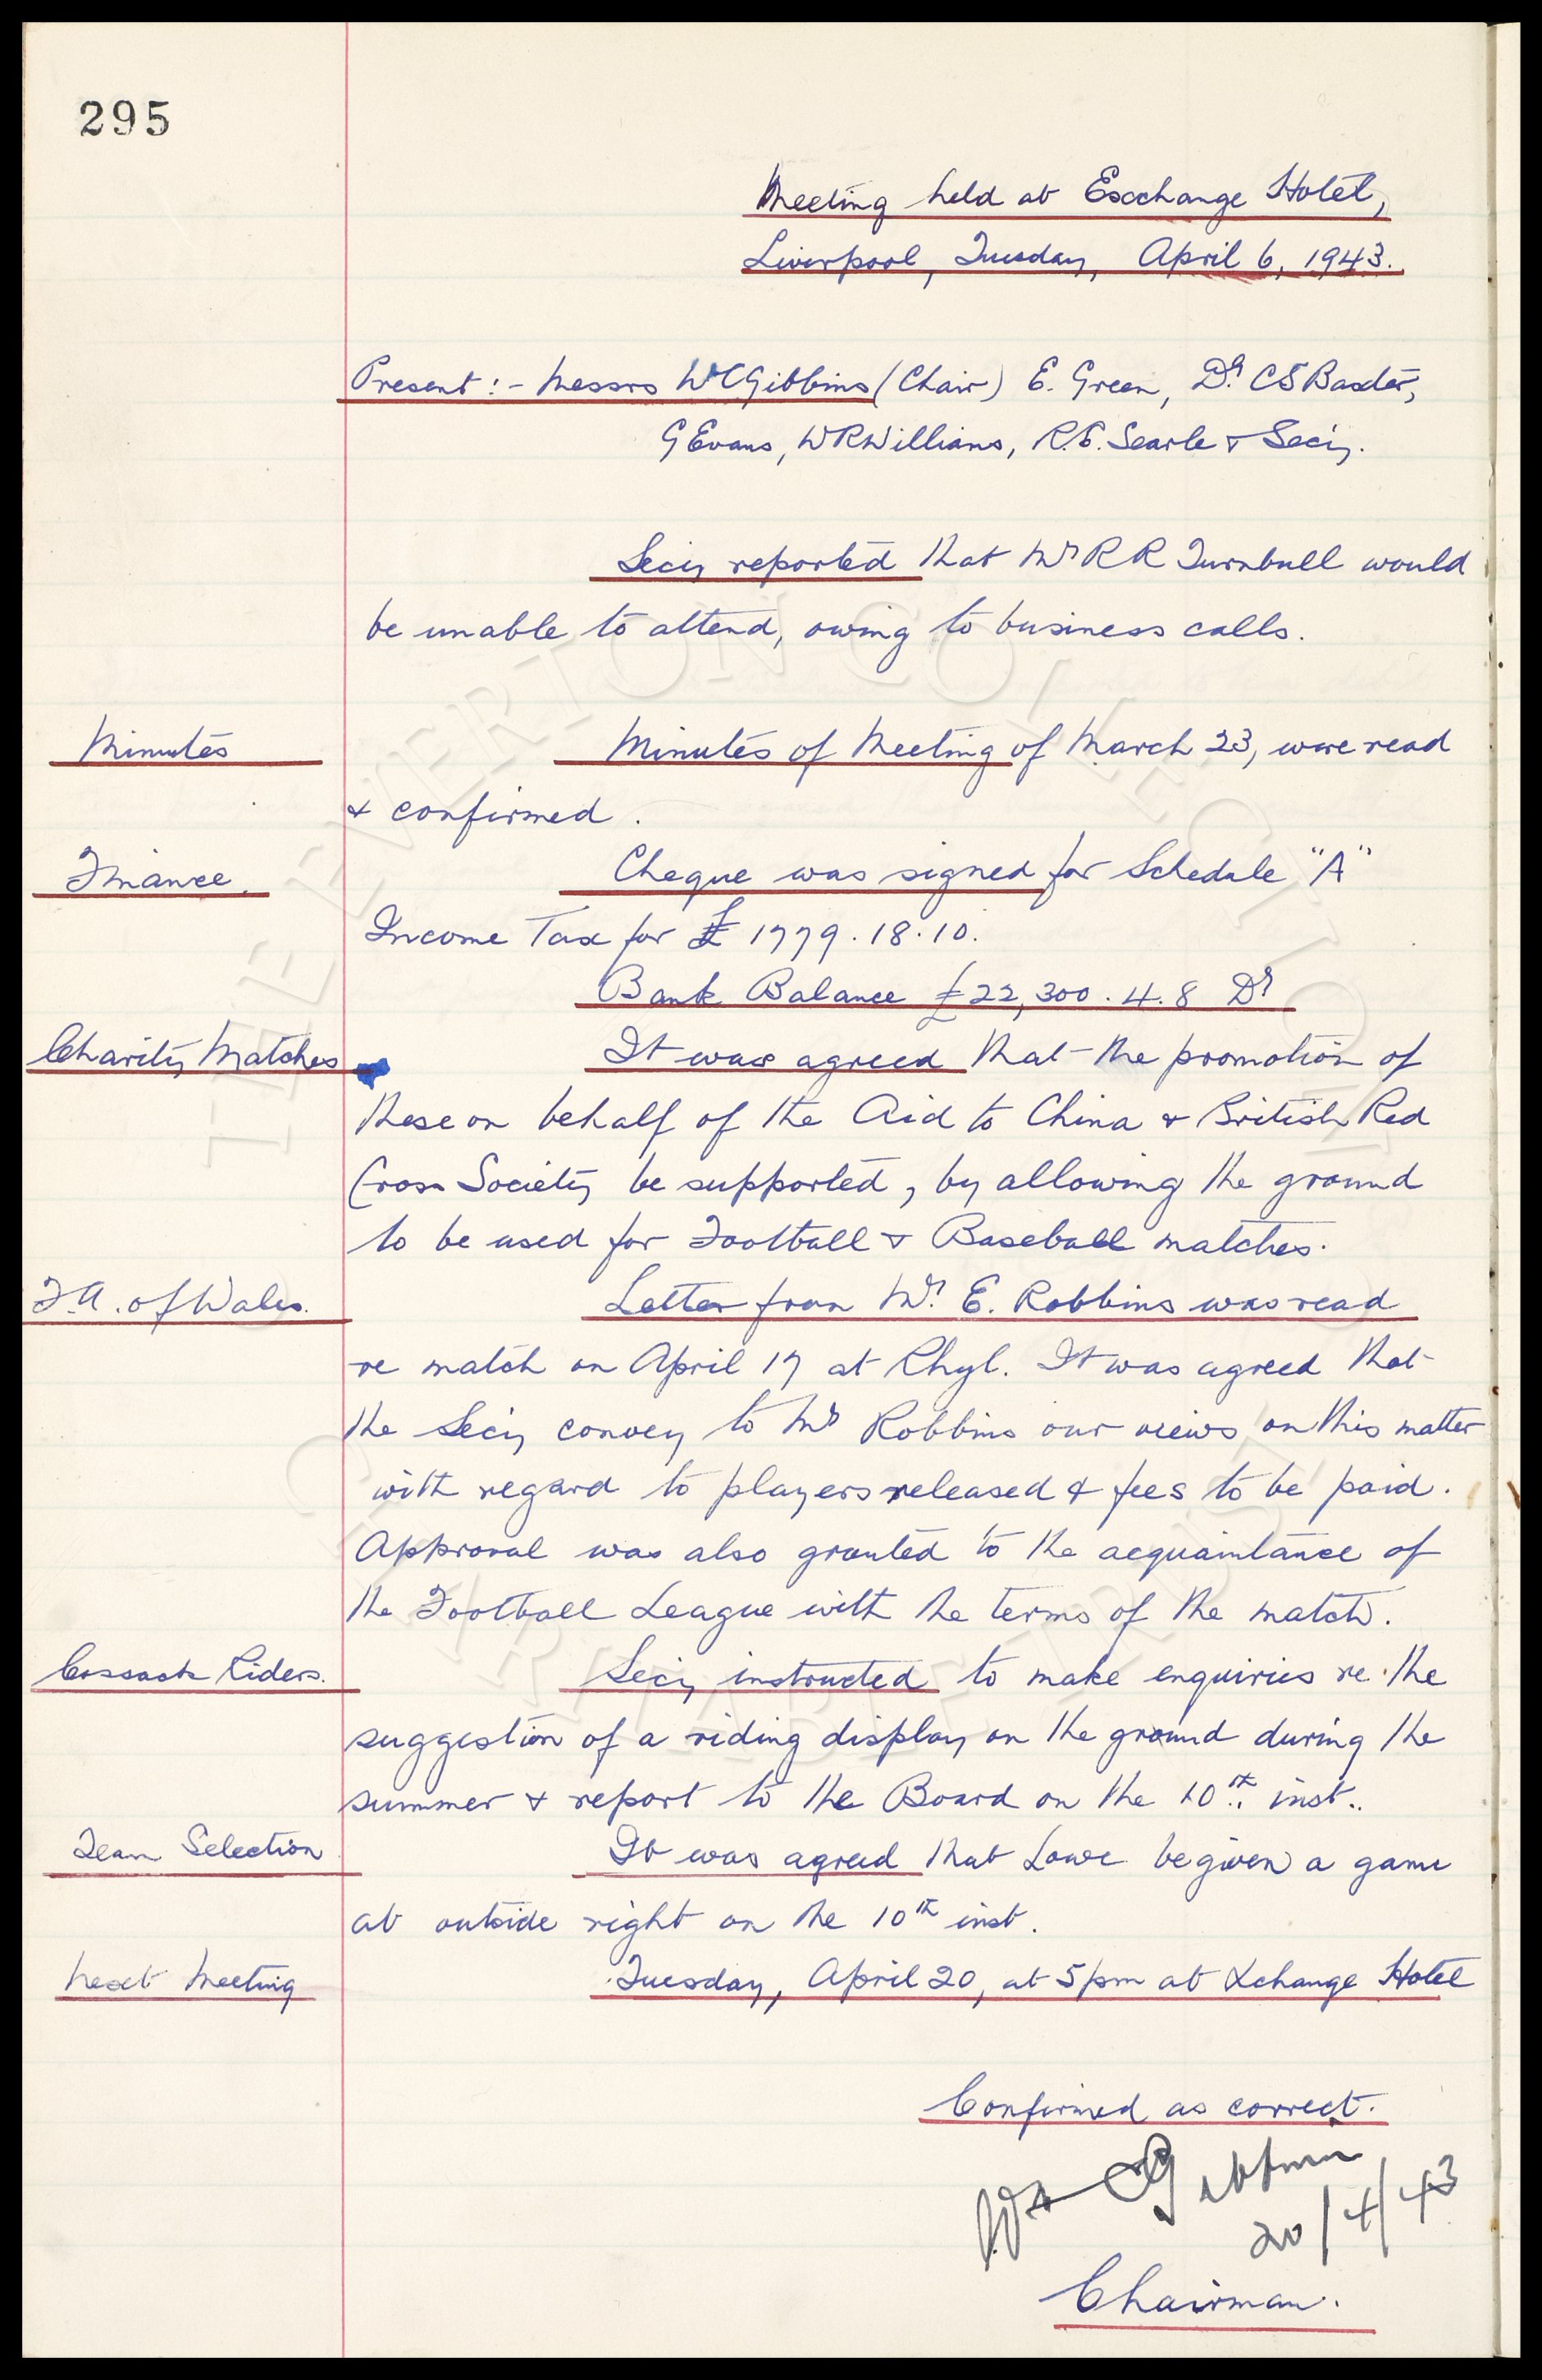 295
Meeting held at Exchange Hotel,
Liverpool, Tuesday, April 6, 1943.
Present:- Messrs W C Gibbins (Chair) E. Green, Dr. C S Baxter,
G Evans, W R Williams, R. E. Searle & Secy.
Secy reported that Mr R R Turnbull would
be unable to attend, owing to business calls.
Minutes Minutes of Meeting of March 23, were read
& confirmed.
Finance. Cheque was signed for Schedule "A"
Income Tax for £ 1779. 18. 10.
Bank Balance £22,300. 4. 8 Dr
Charity Matches It was agreed that the promotion of
these on behalf of the Aid to China & British Red
Cross Society be supported, by allowing the ground
to be used for Football & Baseball matches.
F.A. of Wales. Letter from Mr. E. Robbins was read
re match on April 17 at Rhyl. It was agreed that
the Secy convey to Mr Robbins our views on this matter
with regard to players released & fees to be paid.
Approval was also granted to the acquaintance of
the Football League with the terms of the match.
Cossack Riders. Secy instructed to make enquiries re the
suggestion of a riding display on the ground during the
summer & report to the Board on the 10th inst..
Team Selection It was agreed that Lowe be given a game
at outside right on the 10th inst.
Next Meeting Tuesday, April 20, at 5pm at Xchange Hotel
Confirmed as correct.
Wm C Gibbins
20/4/43
Chairman.
THE EVERTON COLLECTION
CHARITABLE TRUST